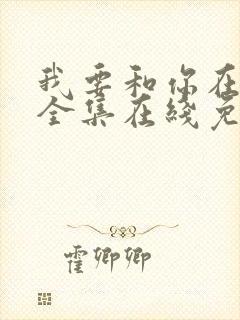 我要和你在
全集在线免
霍卿卿